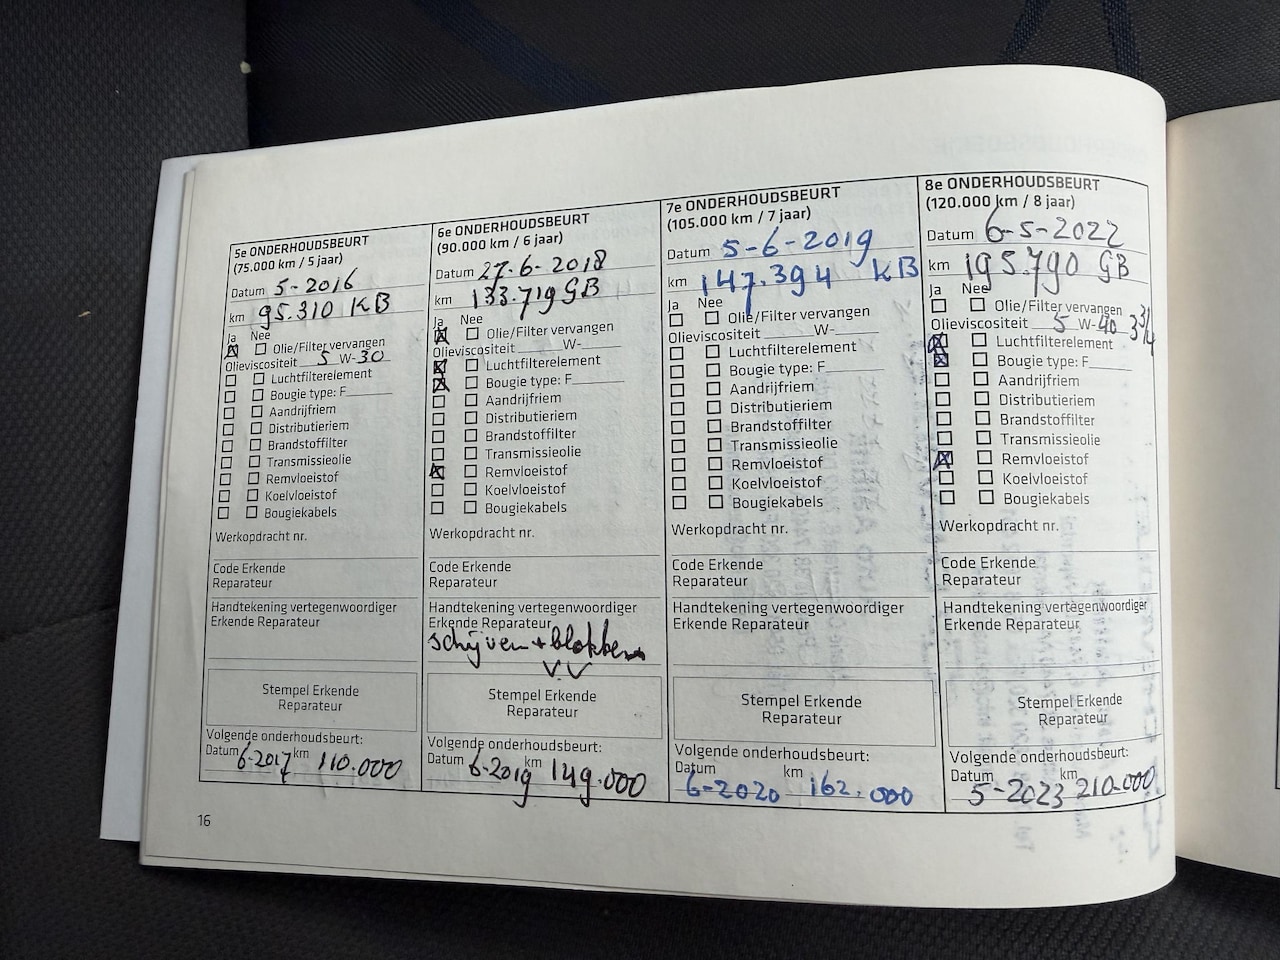 5e ONDERHOUDSBEURT
(75.000 km / 5 jaar)
Datum 5-2016
km 95.310 KB
Ja Nee
Olie/Filter vervangen
Olieviscositeit 5 W-30
Luchtfilterelement
Bougie type: F
Aandrijfriem
Distributieriem
Brandstoffilter
Transmissieolie
Remvloeistof
Koelvloeistof
Bougiekabels
Werkopdracht nr.
Code Erkende
Reparateur
Handtekening vertegenwoordiger
Erkende Reparateur
Stempel Erkende
Reparateur
Volgende onderhoudsbeurt:
Datum 6-2017 km 110.000
6e ONDERHOUDSBEURT
(90.000 km / 6 jaar)
Datum 27-6-2018
km 133.719 GB
Ja Nee
Olie/Filter vervangen
Olieviscositeit W-
Luchtfilterelement
Bougie type: F
Aandrijfriem
Distributieriem
Brandstoffilter
Transmissieolie
Remvloeistof
Koelvloeistof
Bougiekabels
Werkopdracht nr.
Code Erkende
Reparateur
Handtekening vertegenwoordiger
Erkende Reparateur
schijven + blokken
V.V
Stempel Erkende
Reparateur
Volgende onderhoudsbeurt:
Datum 6-2019 km 149.000
7e ONDERHOUDSBEURT
(105.000 km / 7 jaar)
Datum 5-6-2019
km 147.394 KB
Ja Nee
Olie/Filter vervangen
Olieviscositeit W-
Luchtfilterelement
Bougie type: F
Aandrijfriem
Distributieriem
Brandstoffilter
Transmissieolie
Remvloeistof
Koelvloeistof
Bougiekabels
Werkopdracht nr.
Code Erkende
Reparateur
Handtekening vertegenwoordiger
Erkende Reparateur
Stempel Erkende
Reparateur
Volgende onderhoudsbeurt:
Datum 6-2020 km 162.000
8e ONDERHOUDSBEURT
(120.000 km / 8 jaar)
Datum 6-5-2022
km 195.790 GB
Ja Nee
Olie/Filter vervangen
Olieviscositeit 5 W-40 3 3/4
Luchtfilterelement
Bougie type: F
Aandrijfriem
Distributieriem
Brandstoffilter
Transmissieolie
Remvloeistof
Koelvloeistof
Bougiekabels
Werkopdracht nr.
Code Erkende
Reparateur
Handtekening vertegenwoordiger
Erkende Reparateur
Stempel Erkende
Reparateur
Volgende onderhoudsbeurt:
Datum 5-2023 km 210.000
16